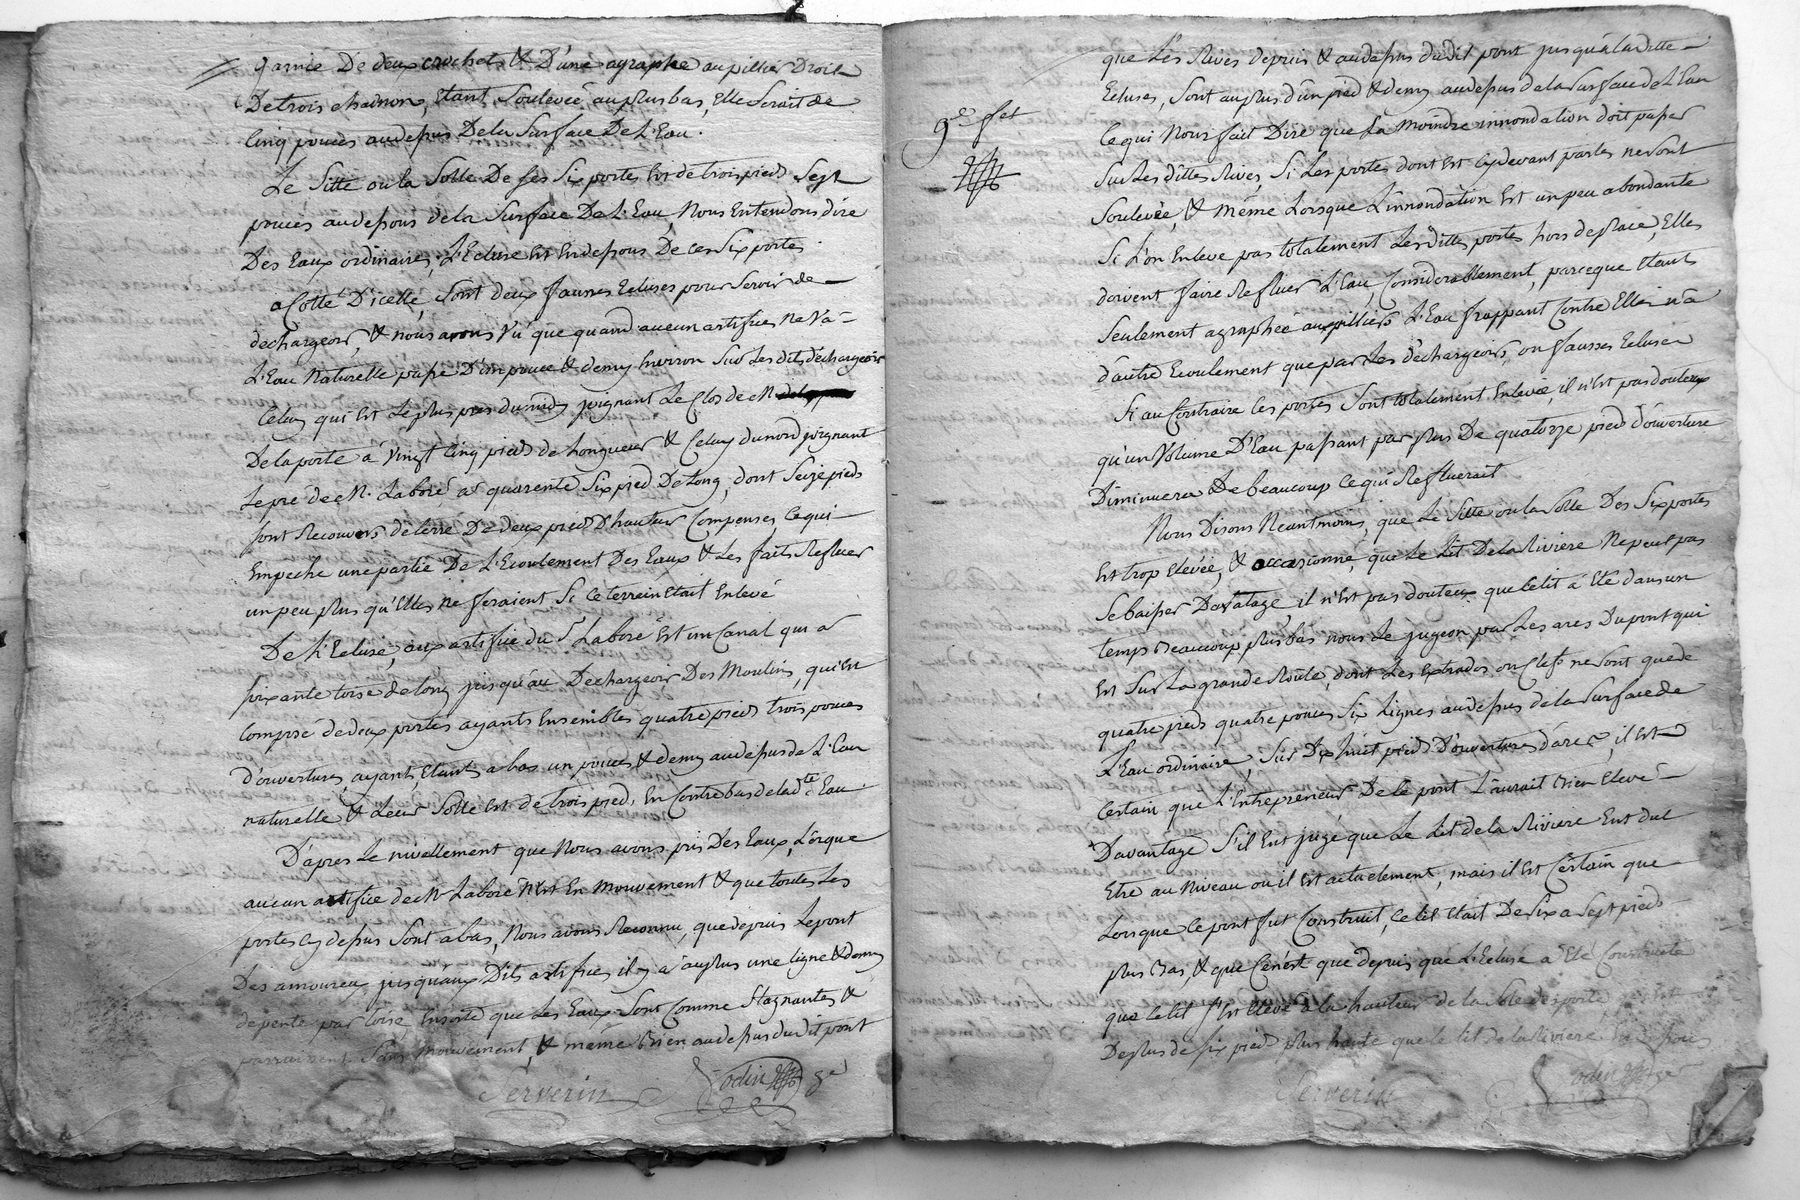 garnie De deux crochets & D'une agraphe au pillier Droit
De trois chainon, Etant Soulevéé au plus bas, Elle Serait de
Cinq pouces audessus De la Surface De L'Eau.
Le Sitte ou la Solle De ses Six portes Est de trois pieds Sept
pouces audessous de la Surface De L'Eau, Nous Entendons dire
Des Eaux ordinaires, L'Ecluse Est Endessous De ces Six portes
a Cotté D'icelle, Sont deux fausses Ecluses pour Servir de
dechargeoir, & nous avons Vû que quand aucun artifices Ne Va
L'Eau Naturelle passe D'un pouce & demy Environ Sur Les dits déchargeoir
Celuy qui Est Le plus pres du midy joignant Le Clos de M.
Delaporte à Vingt Cinq pieds de Longueur & Celuy du nord joignant
Le pré de M. Laboré a quarente Six pied De Long, dont Seize pieds
sont Recouvers de terre De deux pieds D'hauteur Compensés, Ce qui
Empeche une partie De L'Ecoulement Des Eaux & Les faits Refluer
un peu plus qu'Elles ne feraient Si Ce terrein Etait Enlevé
De L'Ecluse, aux artifice du Sr. Laboré Est un Canal qui a
soixante toise de long jusqu'au Dechargeoir Des Moulins, qui Est
Composé de deux portes ayants Ensembles quatre pieds trois pouces
D'ouvertures, ayant, Etant a bas un pouce & demy audessus de L'Eau
naturelle & Leur Solle Est de trois pied, En Contrebas de lad.te Eau.
D'apres Le nivellement que Nous avons pris Des Eaux, Lorque
aucun artifice de Mr Laboré n'Est En mouvement & que toutes Les
portes Cy dessus Sont a bas, Nous avons Reconnu, que depuis Le pont
Des amoureux jusqu'aux Dits artifices, il y a auplus une ligne & demy
de pente par toise Ensorte que Les Eaux Sont Comme Stagnantes &
parraissent Sans Mouvement, & même Bien audessus dudit pont
Serverin Jodin ge
que Les Rives depuis & audessus dudit pont jusqu'a la ditte
Ecluses, Sont au plus d'un pied & demy audessus de la Surface de L'Eau
9e fet
Ce qui Nous fait Dire que La Moindre innondation doit passer
Sur Les dittes Rives, Si Les portes dont Est Cy devant parlés ne Sont
Soulevéé, & même Lorsque L'innondation Est un peu abondante
Si L'on Enleve pas totalement Les dittes portes hors de place, Elles
doivent faire Refluer L'Eau, Considerablement, parceque Etant
Seulement agraphéé aux pilliers L'Eau frappant Contre Elles n'a
d'autre Ecoulement que par Les déchargeoirs, ou fausses Ecluses
Si au Contraire Ces portes Sont totalement Enlevée, il n'Est pas douteux
qu'un Volume D'Eau passant par plus De quatorze pied d'ouverture
Diminuera De beaucoup Ce qui Refluerait
Nous Disons Neantmoins, que Le Sitte ou la Solle Des Six portes
Est trop Elevéé, & occasionne, que Le Lit De la Riviere Ne peut pas
Se baisser Davatage, il n'Est pas douteux que Ce lit a Eté dans un
temps Beaucoup plus bas nous Le jugeon par Les arcs Du pont qui
Est Sur La grande Route, dont Les Extrados ou Clefs ne Sont que de
quatre pieds quatre pouces Six Lignes audessus de la Surface de
L'Eau ordinaire, Sur Dix huit pieds D'ouvertures d'arcs, il Est
Certain que L'Entrepreneur De Ce pont L'aurait Bien Elevé
Davantage S'il Eut jugé que Le Lit de la Riviere Eut dut
Etre au Niveau ou il Est actuelement, mais il Est Certain que
Lorsque Ce pont fut Construit, Ce lit Etait De Six a Sept pieds
plus Bas, & que Ce n'est que depuis que L'Ecluse a Eté Construite
que Ce lit s'Est Elevé a la hauteur de la Solle des portes,
De plus de six pied plus haute que le lit de la Riviere
Serverin Jodin ge